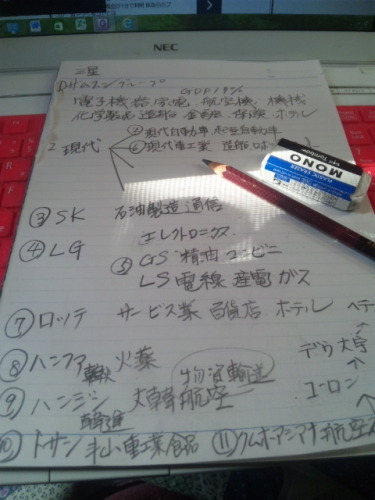 NEC
三星
1.サムスングループ GDP18%
電子機器 家電 航空機 機械
化学製品 造船 金融 保険 ホテル
②現代自動車
2 現代
⑥現代重工業 造船
MONO
③SK 石油製造通信
④LG エレクトロニクス
⑤GS 精油 コンビニ
LS電線 産電 ガス
⑦ロッテ サービス業 百貨店 ホテル
⑧ハンファ 火薬
物資輸送
デウ 大宇
⑨ハンジン 大韓航空
韓進
コーロン
⑩トサン 斗山 重工業 食品 ⑪クムホアシアナ航空